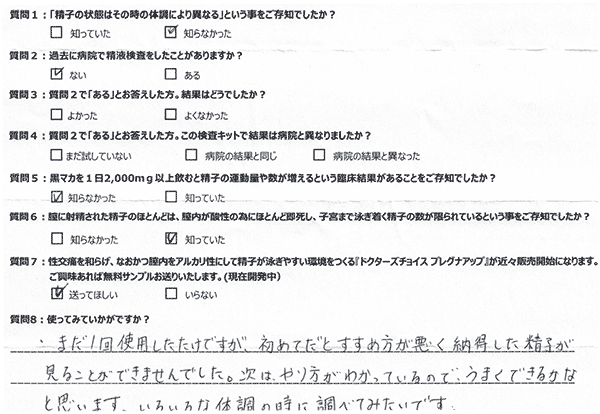 質問1：「精子の状態はその時の体調により異なる」という事をご存知でしたか？
□ 知っていた ☑ 知らなかった
質問2：過去に病院で精液検査をしたことがありますか？
☑ ない □ ある
質問3：質問2で「ある」とお答えした方。結果はどうでしたか？
□ よかった □ よくなかった
質問4：質問2で「ある」とお答えした方。この検査キットで結果は病院と異なりましたか？
□ まだ試していない □ 病院の結果と同じ □ 病院の結果と異なった
質問5：黒マカを1日2,000mg以上飲むと精子の運動量や数が増えるという臨床結果があることをご存知でしたか？
☑ 知らなかった □ 知っていた
質問6：膣に射精された精子のほとんどは、膣内が酸性の為にほとんど即死し、子宮まで泳ぎ着く精子の数が限られているという事をご存知でしたか？
□ 知らなかった ☑ 知っていた
質問7：性交痛を和らげ、なおかつ膣内をアルカリ性にして精子が泳ぎやすい環境をつくる『ドクターズチョイス プレグナアップ』が近々販売開始になります。
ご興味あれば無料サンプルお送りいたします。(現在開発中)
☑ 送ってほしい □ いらない
質問8：使ってみていかがですか？
・まだ1回使用しただけですが、初めてだとすすめ方が悪く納得した精子が
見ることができませんでした。次は、やり方がわかっているので、うまくできるかな
と思います。いろいろな体調の時に調べてみたいです。